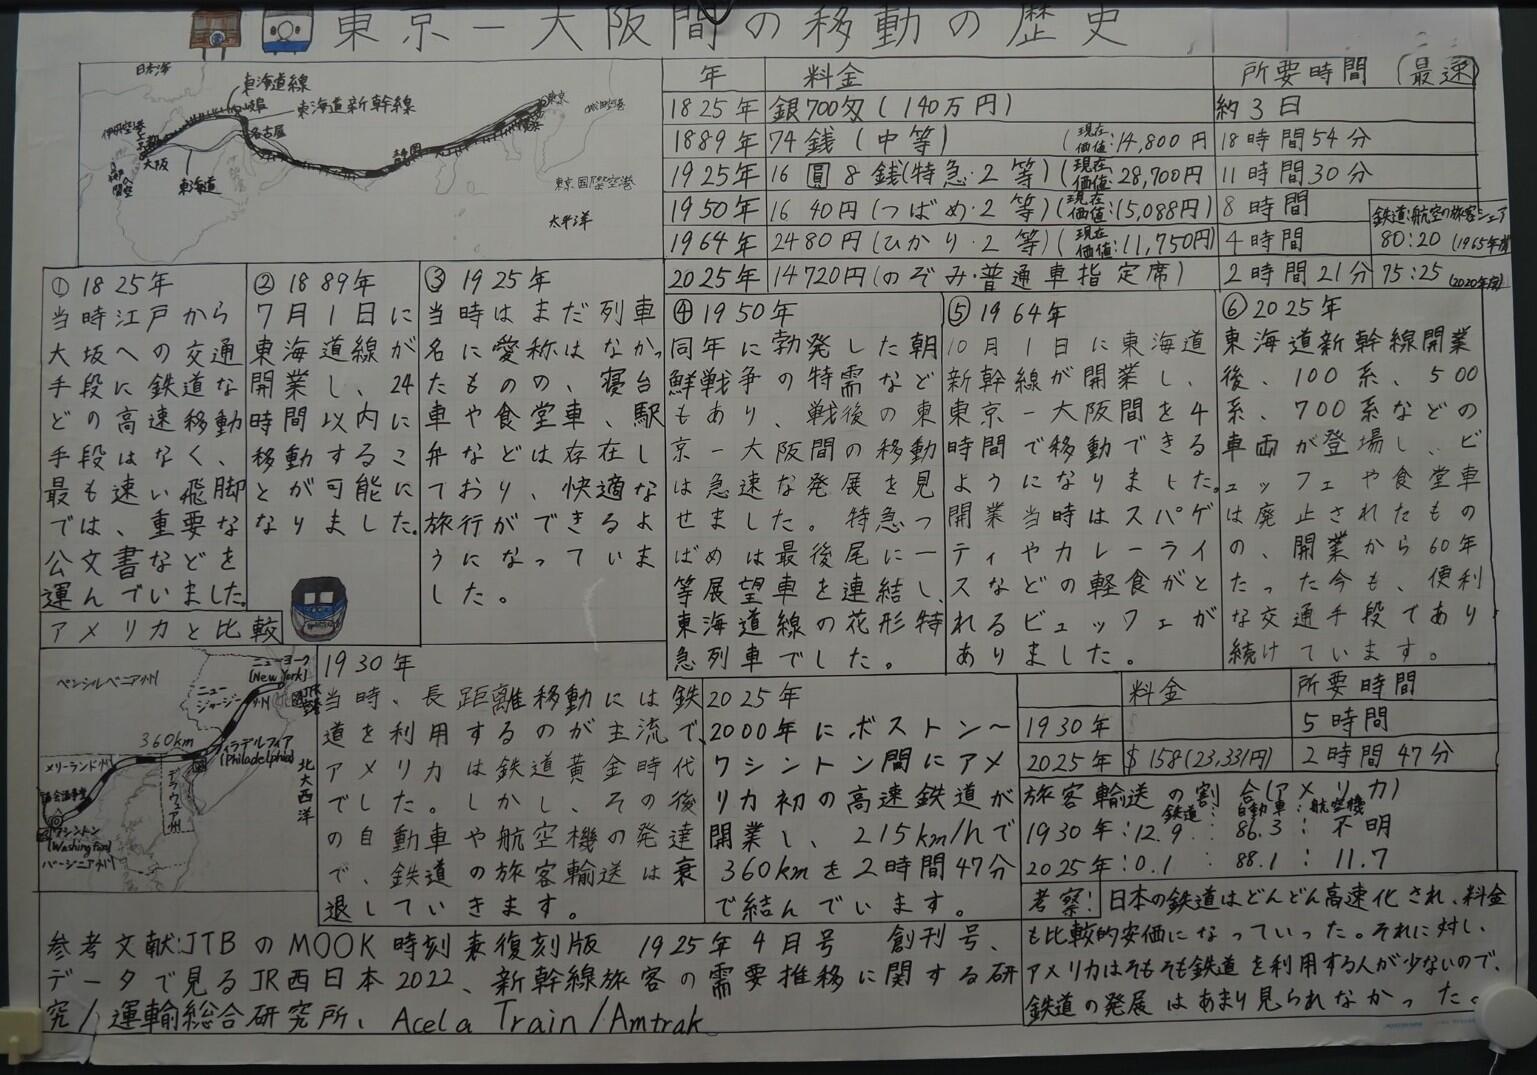 東京－大阪間の移動の歴史
日本海
東海道線
東海道新幹線
岐阜
名古屋
京都
大阪
東海道
東京
東京国際空港
太平洋
年 料金 所要時間（最速）
1825年 銀700匁（140万円） 約3日
1889年 74銭（中等）（現在価値:14,800円 18時間54分
1925年 16圓8銭(特急・2等)（現在価値:28,700円 11時間30分
1950年 16 40円（つばめ・2等)（現在価値:15,088円） 8時間
1964年 2480円（ひかり・2等)（現在価値:11,750円） 4時間
2025年 14720円（のぞみ・普通車指定席） 2時間21分
鉄道:航空の旅客シェア
80:20（1965年度）
75:25（2020年度）
①1825年
当時江戸から
大坂への交通
手段に鉄道な
どの高速移動
手段はなく、
最も速い飛脚
では、重要な
公文書などを
運んでいました。
②1889年
7月1日に
東海道線が
開業し、24
時間以内に
移動するこ
とが可能に
なりました。
③1925年
当時はまだ列車
名に愛称はなかっ
たものの、寝台
車や食堂車、駅
弁などは存在し
ており、快適な
旅行ができるよ
うになっていま
した。
④1950年
同年に勃発した朝
鮮戦争の特需など
もあり、戦後の東
京－大阪間の移動
は急速な発展を見
せました。特急つ
ばめは最後尾に一
等展望車を連結し、
東海道線の花形特
急列車でした。
⑤1964年
10月1日に東海道
新幹線が開業し、
東京－大阪間を4
時間で移動できる
ようになりました。
開業当時はスパゲ
ティやカレーライ
スなどの軽食がと
れるビュッフェが
ありました。
⑥2025年
東海道新幹線開業
後、100系、500
系、700系などの
車両が登場し、ビ
ュッフェや食堂車
は廃止されたもの
の、開業から60年
たった今も、便利
な交通手段であり
続けています。
アメリカと比較
ペンシルベニア州
ニューヨーク
(New York)
ニュージャージー州
360km
フィラデルフィア
(Philadelphia)
メリーランド州
デラウェア州
北大西洋
ワシントン
バージニア州
1930年
当時、長距離移動には鉄
道を利用するのが主流で、
アメリカは鉄道黄金時代
でした。しかし、その後
の自動車や航空機の発達
で、鉄道の旅客輸送は衰
退していきます。
2025年
2000年にボストン〜
ワシントン間にアメ
リカ初の高速鉄道が
開業し、215km/hで
360kmを2時間47分
で結んでいます。
料金 所要時間
1930年 5時間
2025年 $158(23,331円) 2時間47分
旅客輸送の割合（アメリカ）
鉄道:自動車:航空機
1930年:12.9:86.3:不明
2025年:0.1:88.1:11.7
考察!日本の鉄道はどんどん高速化され、料金
も比較的安価になっていった。それに対し、
アメリカはそもそも鉄道を利用する人が少ないので、
鉄道の発展はあまり見られなかった。
参考文献:JTBのMOOK 時刻表復刻版 1925年4月号 創刊号、
データで見るJR西日本2022、新幹線旅客の需要推移に関する研
究/運輸総合研究所、Acela Train/Amtrak